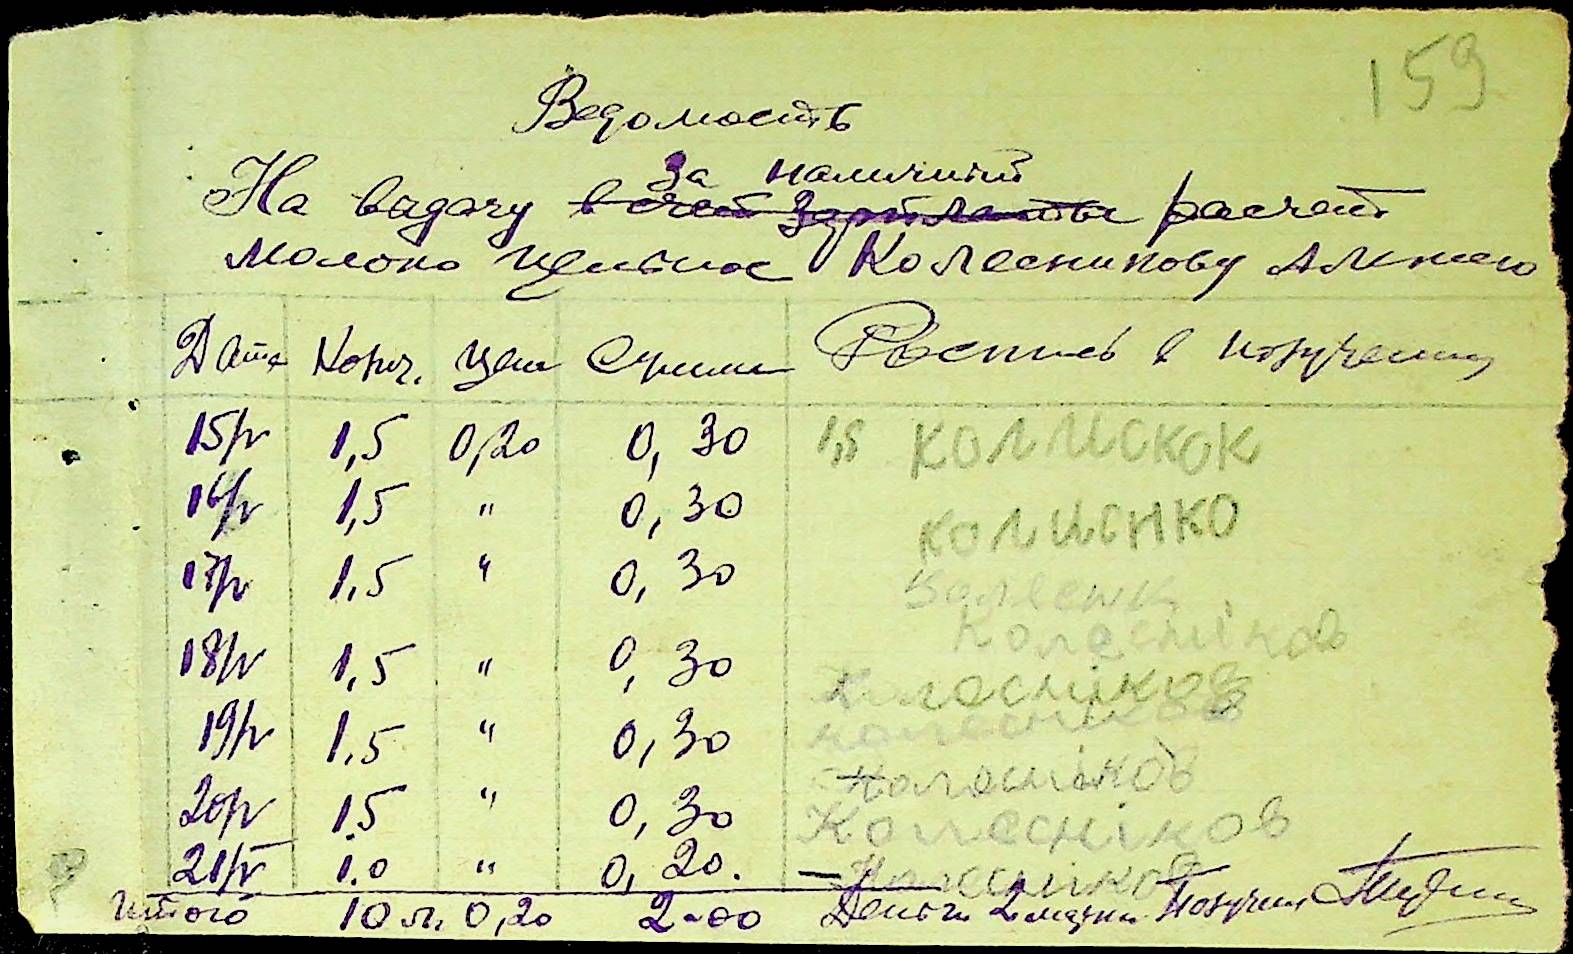 159
Ведомость
за наличный
На выдачу в счет зарплаты расчет
молоко цельное Колесникову Алексею
Дата Колич. Цена Сумма Роспись в получении
15/V 1,5 0,20 0,30 1,5 КОЛИСКОК
16/V 1,5 " 0,30 КОЛИСНКО
17/V 1,5 " 0,30
Колесніков
18/V 1,5 " 0,30 Колесніков
19/V 1,5 " 0,30 Колесніков
Колесніков
20/V 1.5 " 0,30 Колесніков
21/V 1.0 " 0,20. Колесніков
Итого 10 л. 0,20 2-00 Деньги 2 Получил